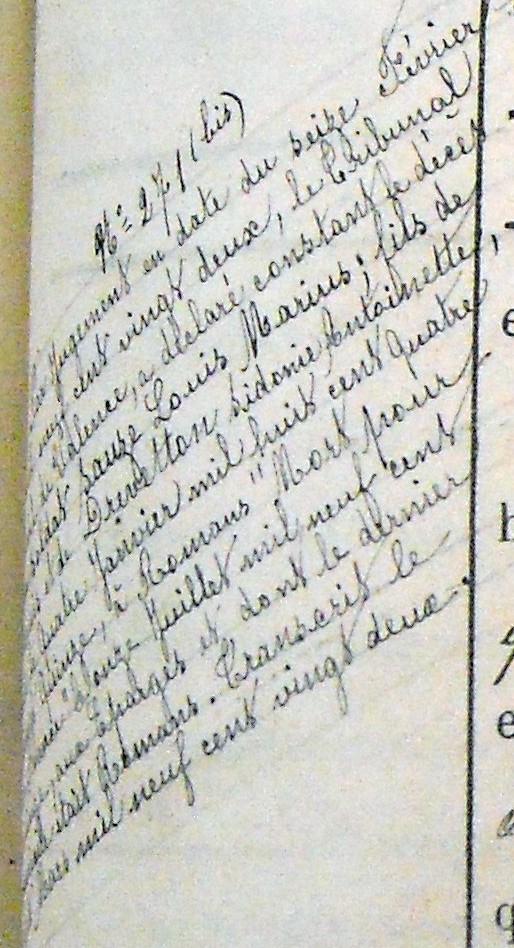 N° 271 (bis)
jugement en date du seize Février
neuf cent vingt deux, le Tribunal
de Valence, a déclaré constant le décès
soldat Sauze Louis Marius, fils de
et de Drevetton Sidonie Antoinette,
quatre Janvier mil huit cent quatre
quinze, à Romans "Mort pour
" onze Juillet mil neuf cent
aux Eparges et dont le dernier
était Romans. Transcrit le
mars mil neuf cent vingt deux.